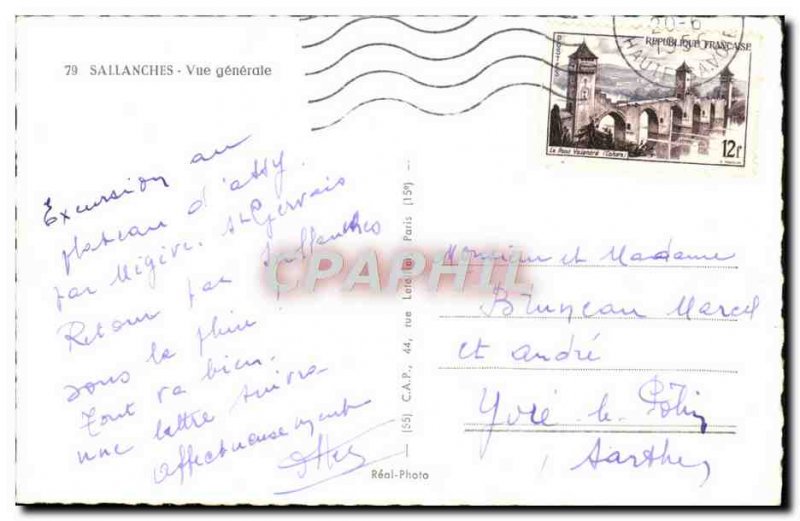 79 SALLANCHES - Vue générale
Excursion au
plateau d'assy.
par Mégève. St Gervais
Retour par Sallanches
sous la pluie !
Tout va bien.
une lettre suivra
affectueusement
REPUBLIQUE FRANÇAISE
POSTES
Le Pont Valentré (Cahors)
12f
HAUTE SAVOIE
CPAPHIL
(55) C.A.P., 44, rue Letellier, Paris (15e)
Réal-Photo
Monsieur et Madame
Bruneau Marcel
et andré
Yvré-le-Pôlin
Sarthe